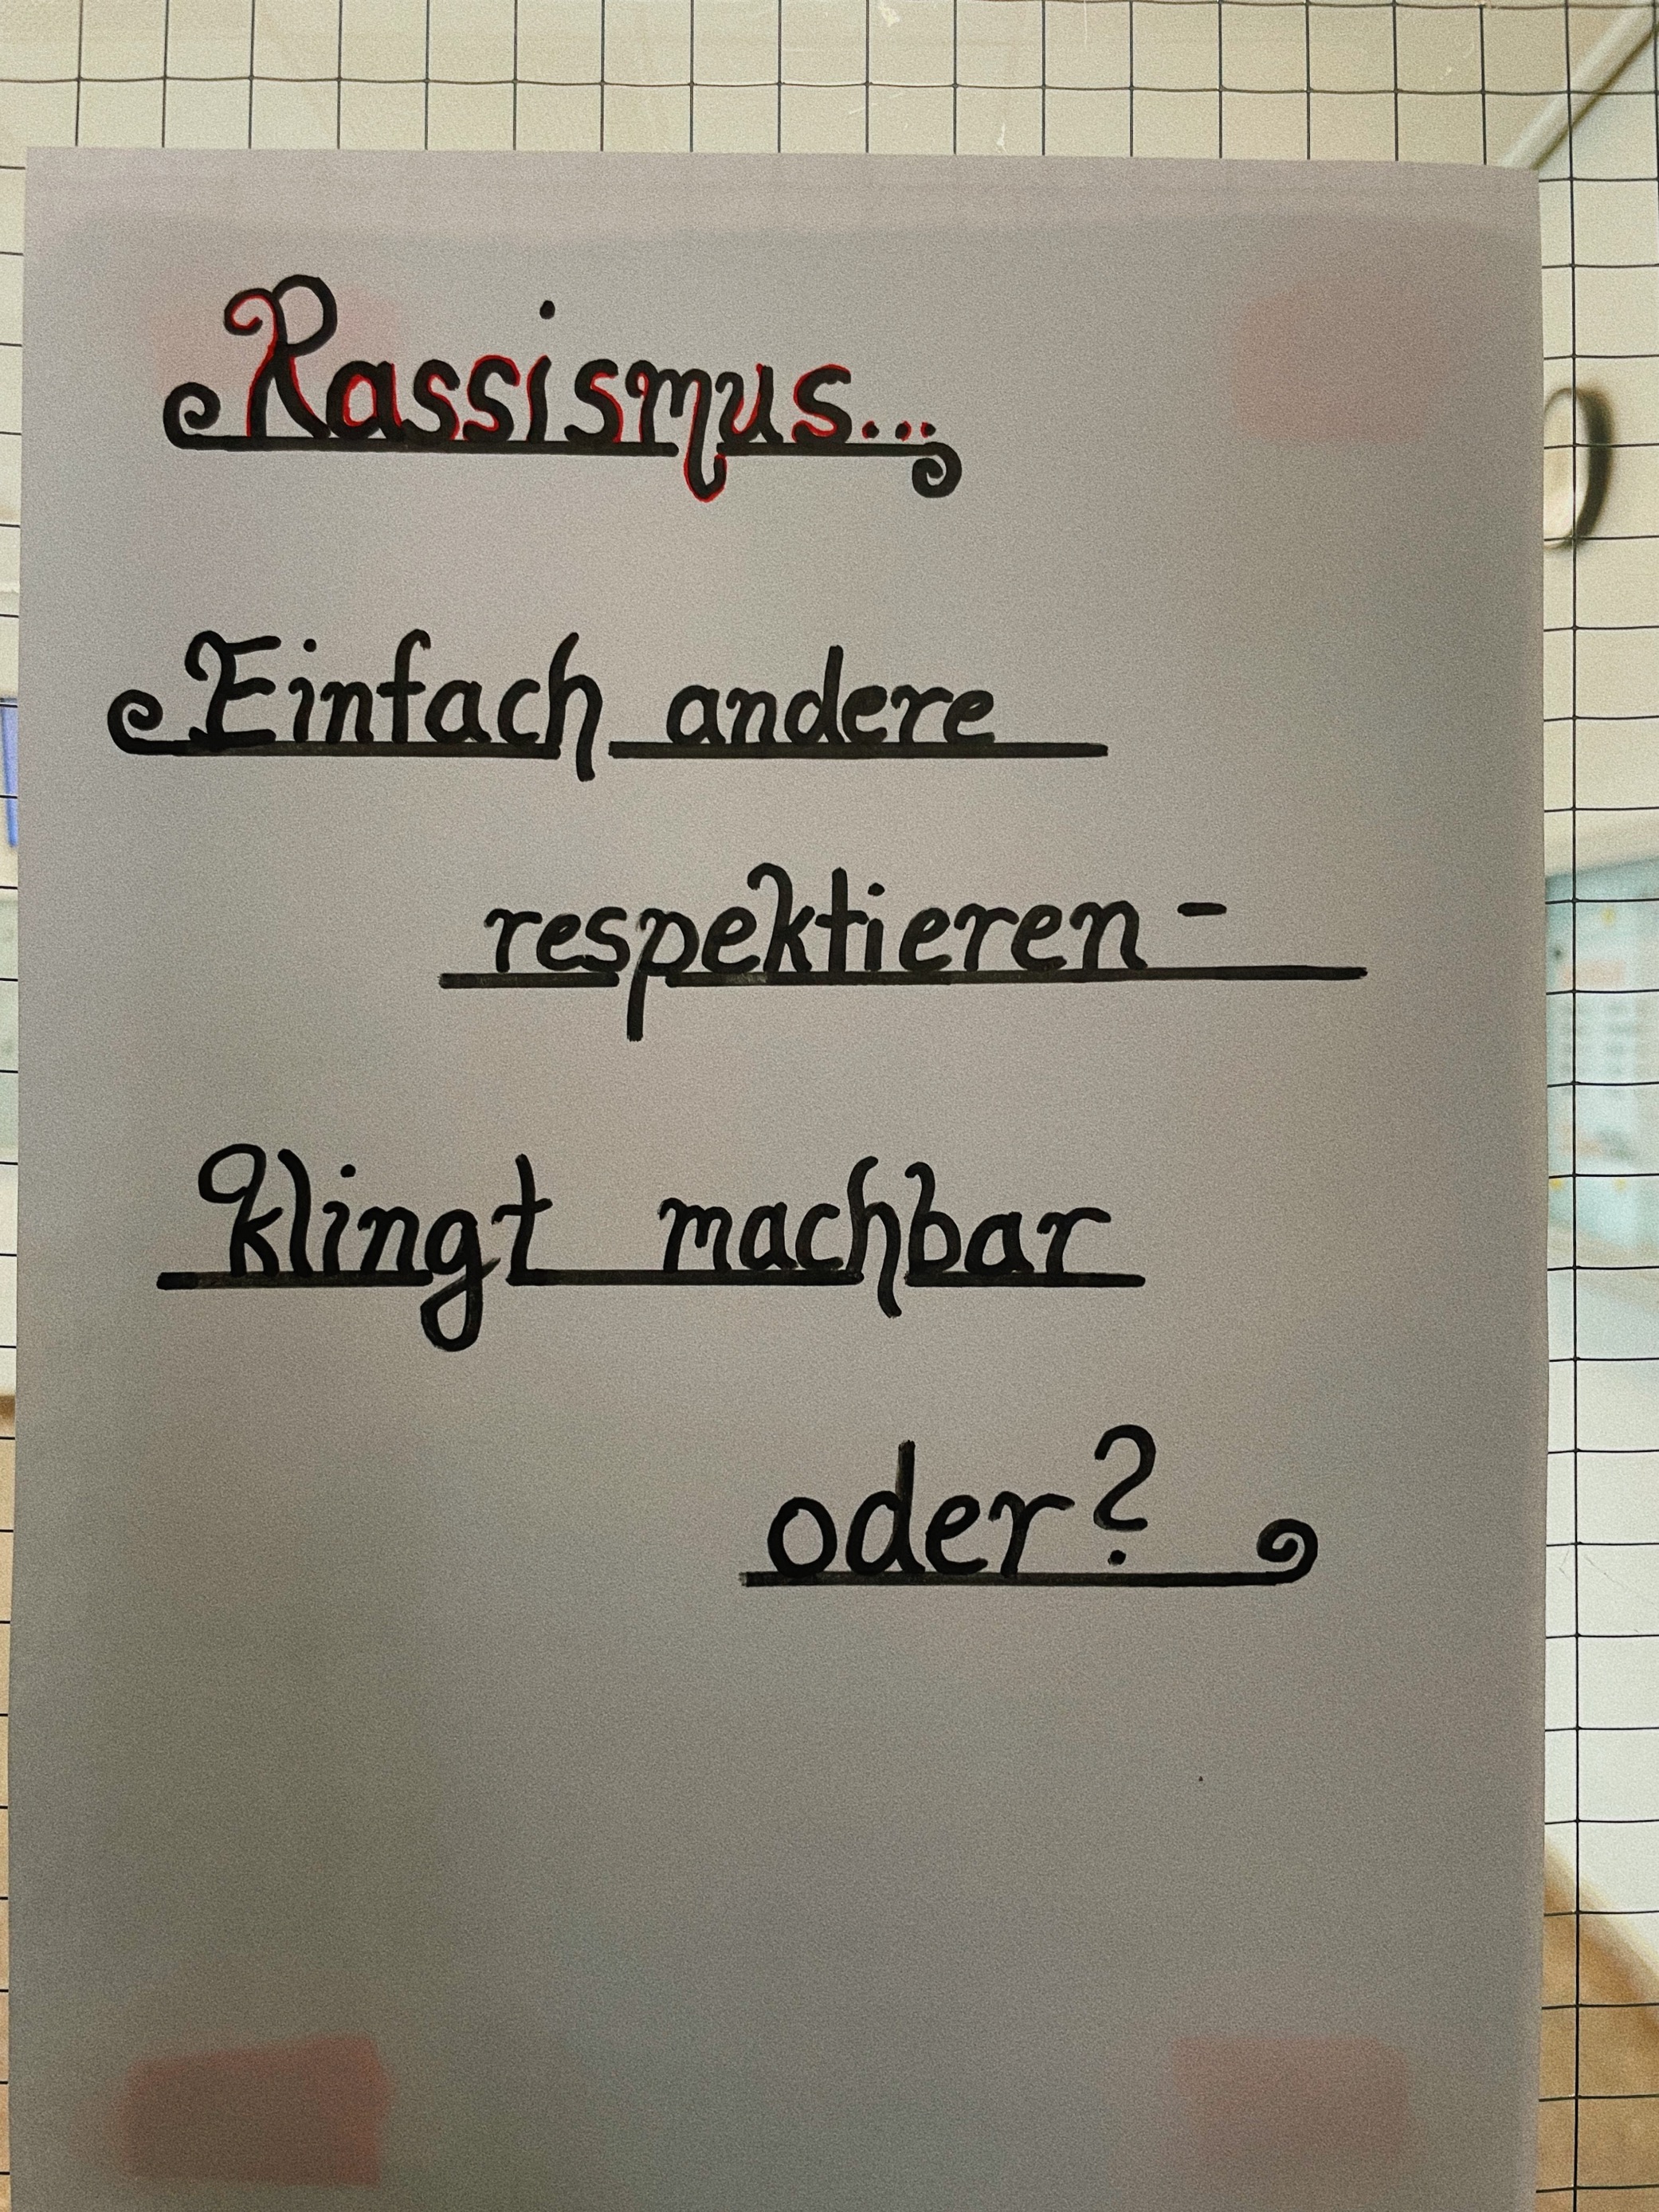 Rassismus...
Einfach andere
respektieren -
klingt machbar
oder?